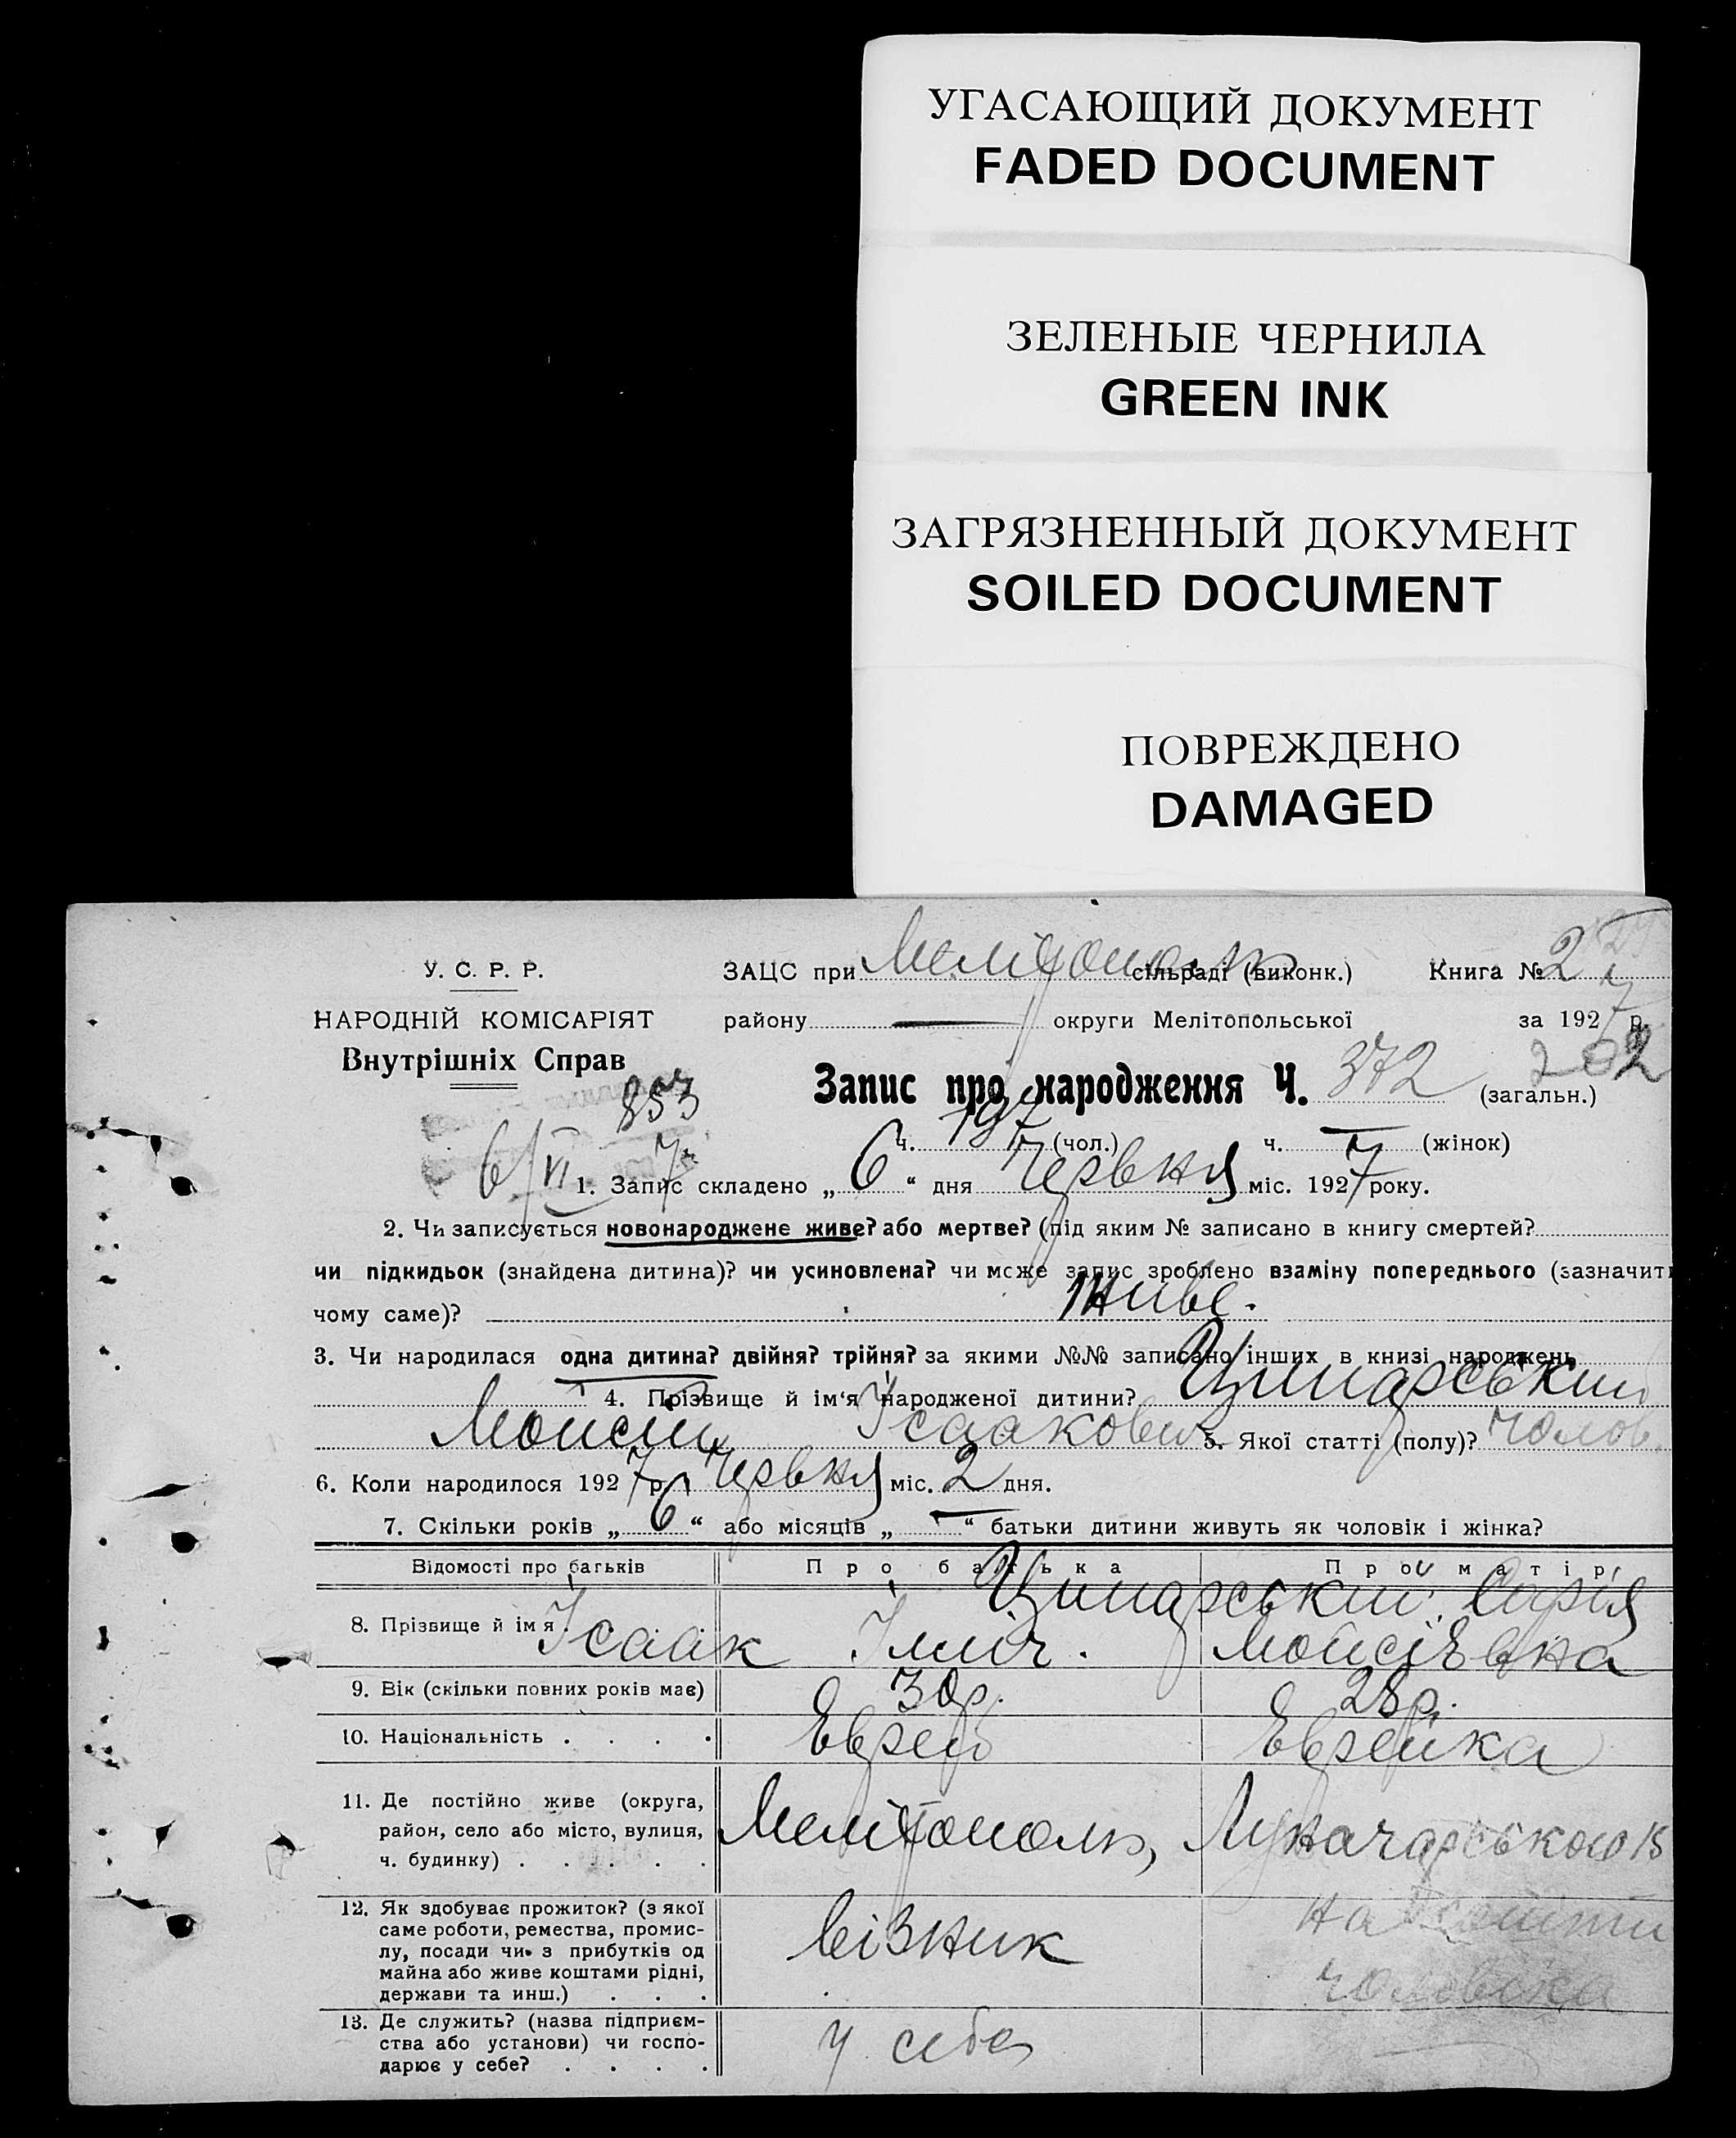 УГАСАЮЩИЙ ДОКУМЕНТ
FADED DOCUMENT
ЗЕЛЕНЫЕ ЧЕРНИЛА
GREEN INK
ЗАГРЯЗНЕННЫЙ ДОКУМЕНТ
SOILED DOCUMENT
ПОВРЕЖДЕНО
DAMAGED
У. С. Р. Р.
НАРОДНІЙ КОМІСАРІЯТ
Внутрішніх Справ
853
6/VI 7
ЗАЦС при Мелітополь сільраді (виконк.) Книга № 2
району — округи Мелітопольської за 1927 р.
202
Запис про народження Ч. 372 (загальн.)
ч. 197 (чол.) ч. — (жінок)
1. Запис складено „6“ дня Червня міс. 1927 року.
2. Чи записується новонароджене живе? або мертве? (під яким № записано в книгу смертей?
чи підкидьок (знайдена дитина)? чи усиновлена? чи може запис зроблено взаміну попереднього (зазначити
чому саме)? живе.
3. Чи народилася одна дитина? двійня? трійня? за якими №№ записано інших в книзі народжень
4. Прізвище й ім'я народженої дитини? Ципарський
Мойсій Ісаакович 5. Якої статті (полу)? Чолов.
6. Коли народилося 1927 р. Червня міс. 2 дня.
7. Скільки років „6“ або місяців „—“ батьки дитини живуть як чоловік і жінка?
Відомості про батьків Про батька Про матір
8. Прізвище й ім я. Ципарський Ісаак Ілліч. Софія Мойсіївна
9. Вік (скільки повних років має) 30р. 28р.
10. Національність . . . . Еврей Еврейка
11. Де постійно живе (округа,
район, село або місто, вулиця,
ч. будинку) . . . . . Мелітополь, Луначарського 15
12. Як здобуває прожиток? (з якої
саме роботи, ремества, промис-
лу, посади чи з прибутків од
майна або живе коштами рідні,
держави та инш.) . . . візник на кошти чоловіка
13. Де служить? (назва підприєм-
ства або установи) чи госпо-
дарює у себе? . . . . у себе